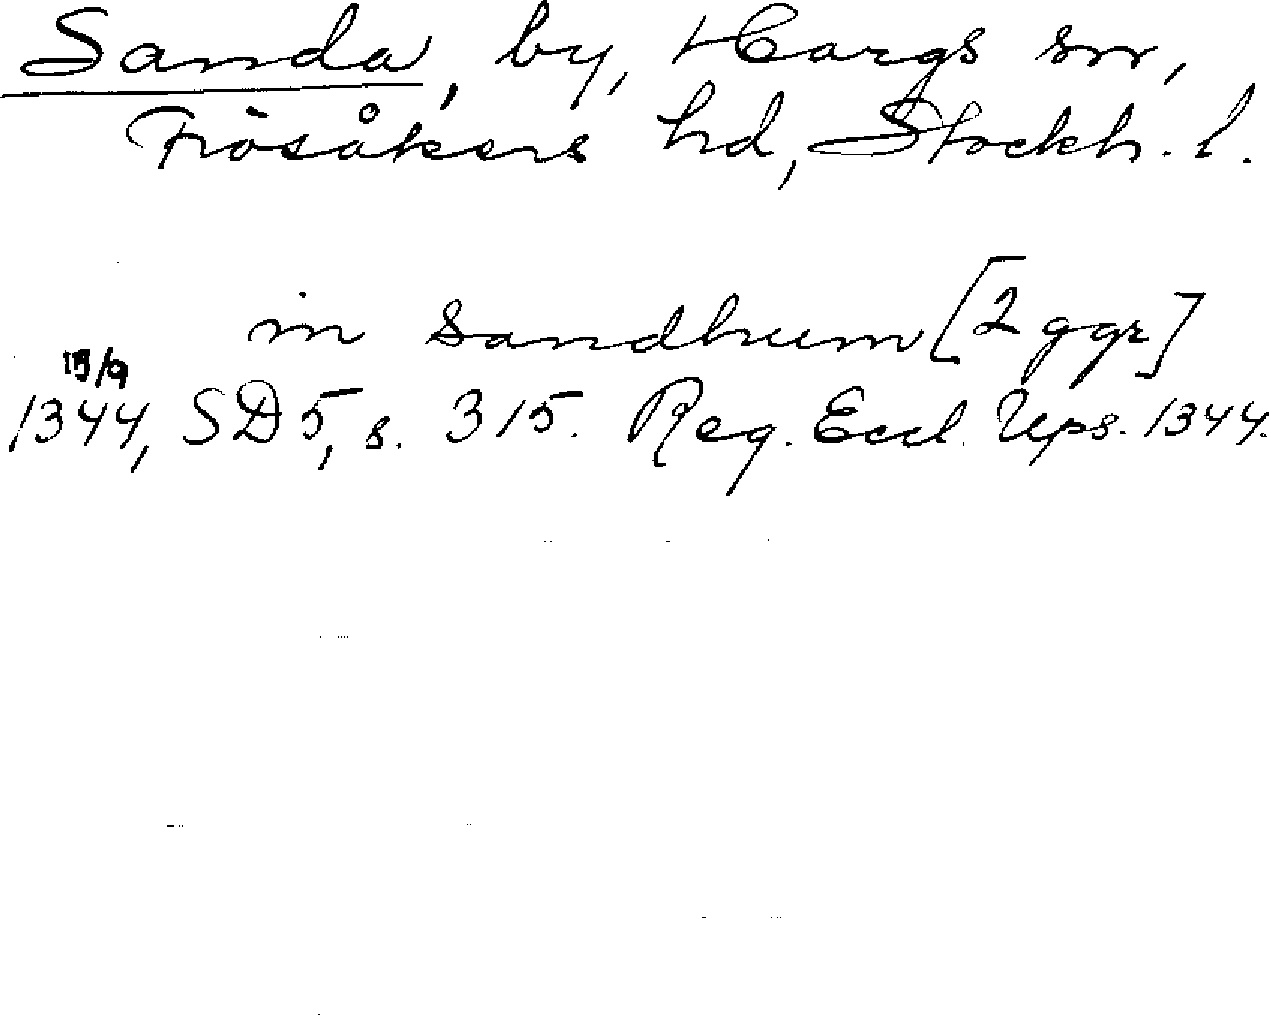 Sanda, by, Hargs sn,
Frösåkers hd, Stockh. l.
in Sandhum [2 ggr]
1344, SD 5, s. 315. Reg. Eccl. Ups. 1344.